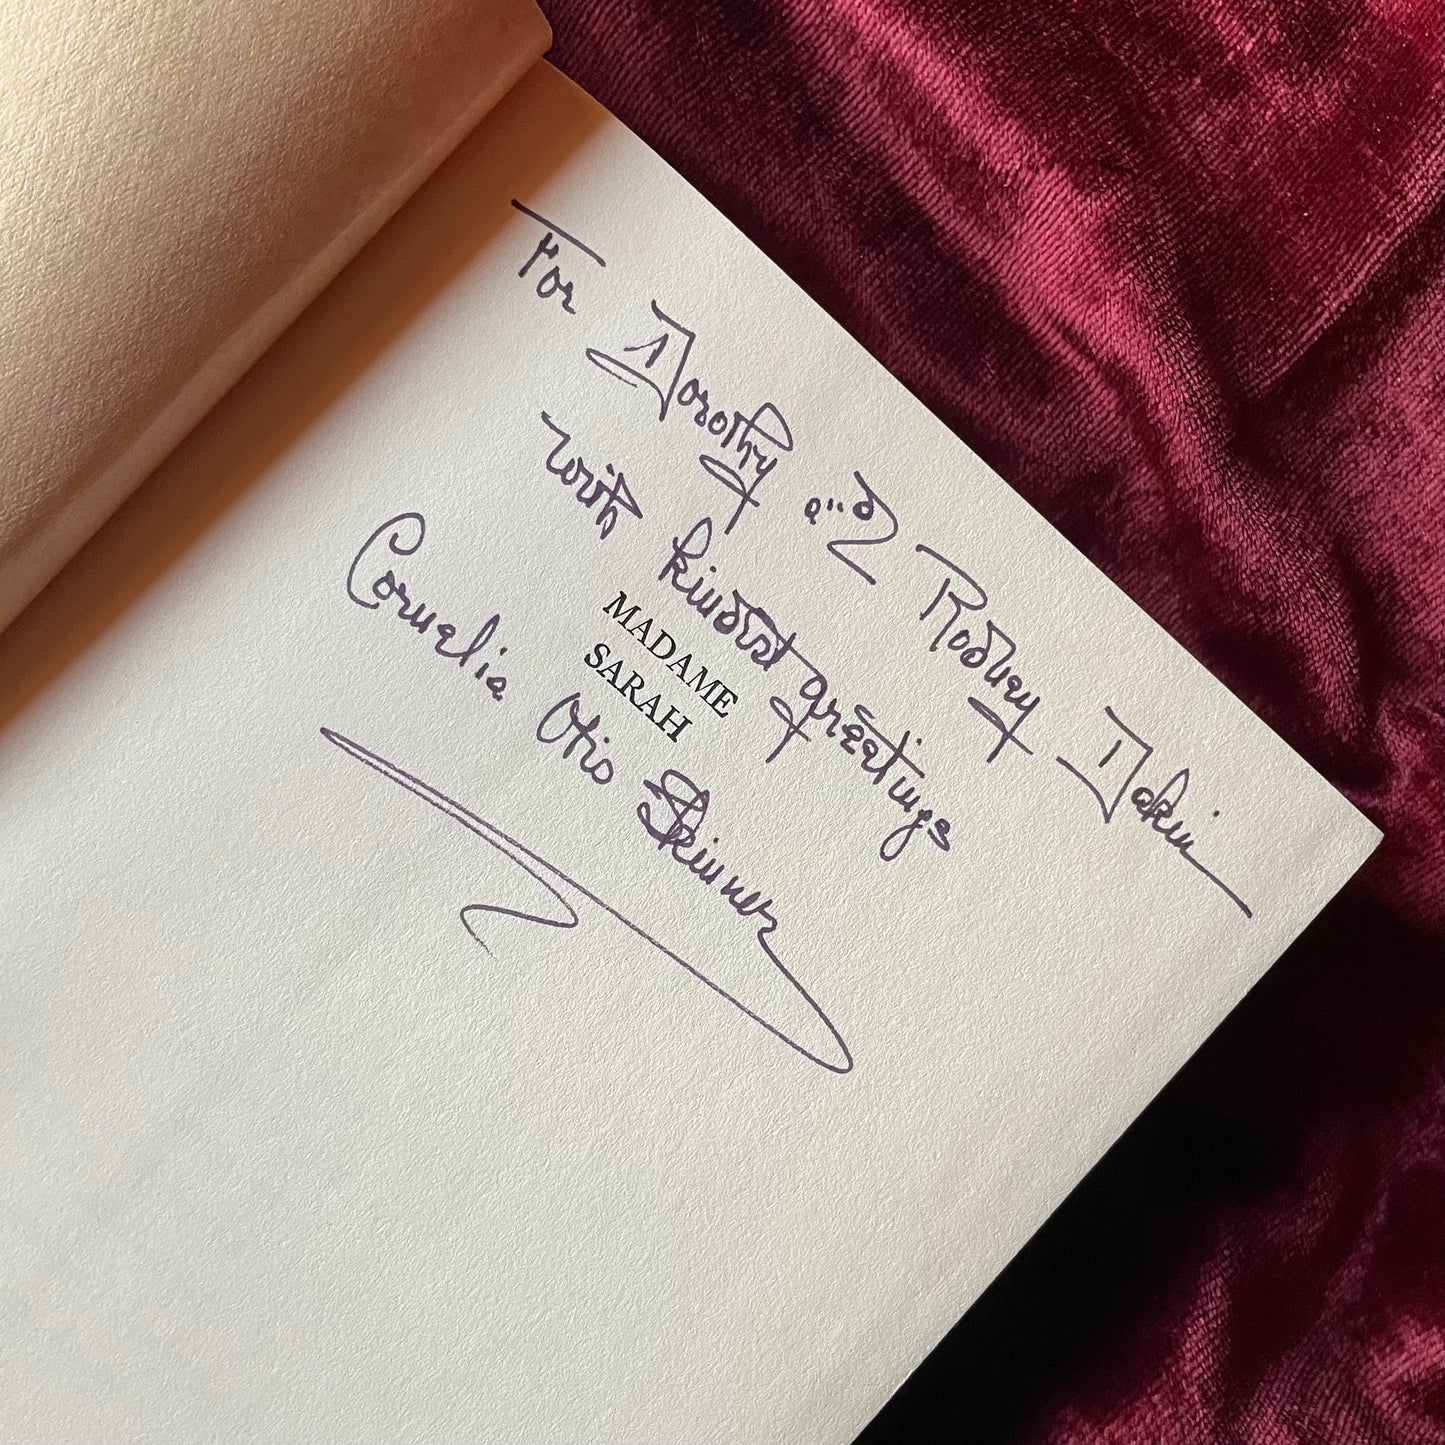 For Dorothy and Rodney Dakin
with kindest greetings
MADAME
SARAH
Cornelia Otis Skinner